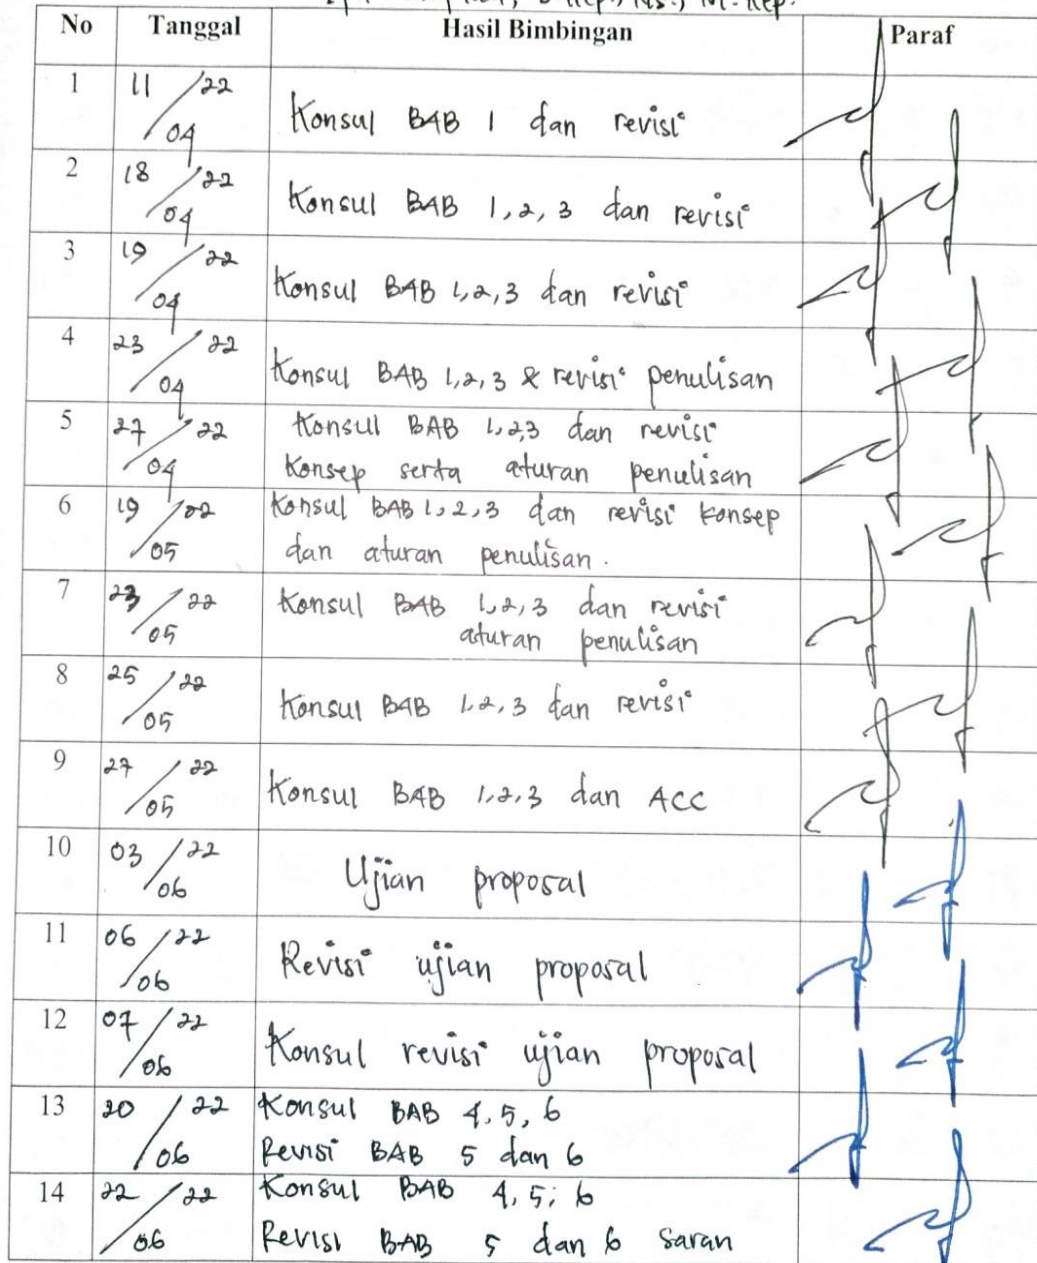 S.Kep., Ns., M.Kep.
No Tanggal Hasil Bimbingan Paraf
1 11/04 22 Konsul BAB 1 dan revisi
2 18/04 22 Konsul BAB 1, 2, 3 dan revisi
3 19/04 22 Konsul BAB 1,2,3 dan revisi
4 23/04 22 Konsul BAB 1,2,3 & revisi penulisan
5 27/04 22 Konsul BAB 1,2,3 dan revisi
Konsep serta aturan penulisan
6 19/05 22 Konsul BAB 1,2,3 dan revisi konsep
dan aturan penulisan.
7 23/05 22 Konsul BAB 1,2,3 dan revisi
aturan penulisan
8 25/05 22 Konsul BAB 1,2,3 dan revisi
9 27/05 22 Konsul BAB 1,2,3 dan ACC
10 03/06 22 Ujian proposal
11 06/06 22 Revisi ujian proposal
12 07/06 22 Konsul revisi ujian proposal
13 20/06 22 Konsul BAB 4,5,6
Revisi BAB 5 dan 6
14 22/06 22 Konsul BAB 4,5,6
Revisi BAB 5 dan 6 saran